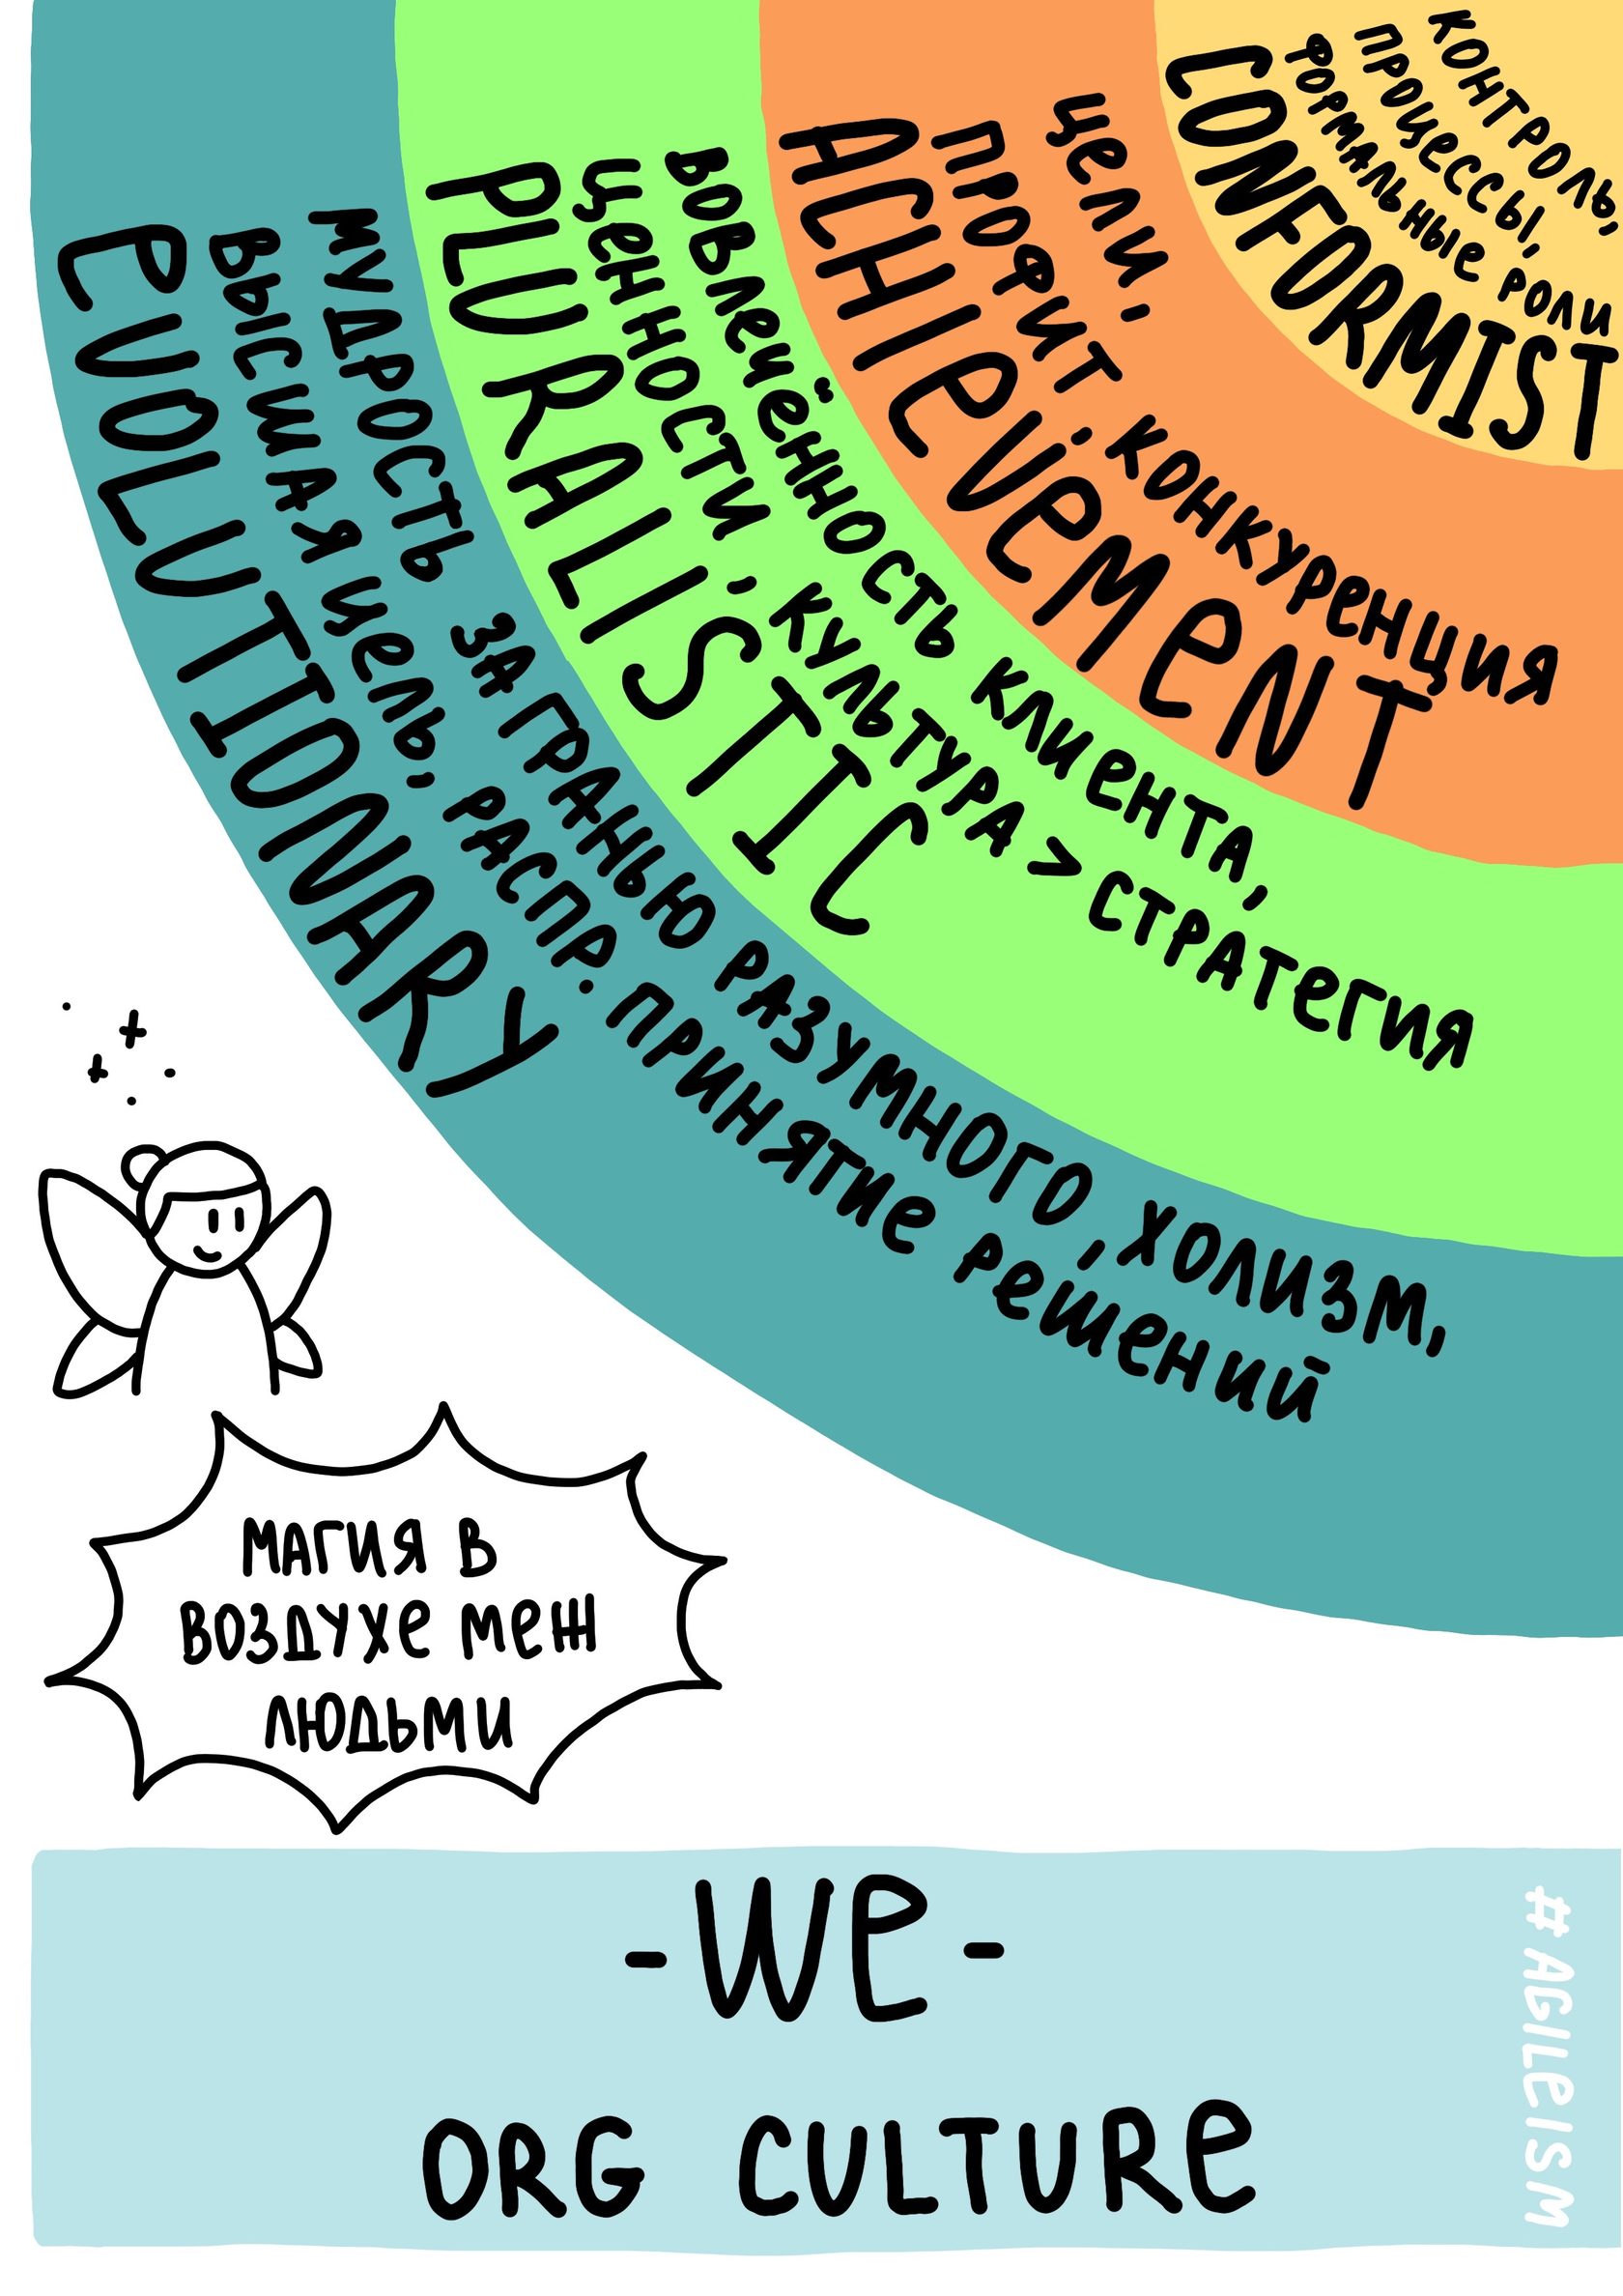 контроль,
процессы,
формальные роли
CONFORMIST
цели,
профит, конкуренция
ACHIEVEMENT
вовлечённость клиента,
ценности, культура > стратегия
PLURALISTIC
мудрость за гранью разумного, холизм,
высшая цель, распр. принятие решений
EVOLUTIONARY
МАГИЯ В
ВОЗДУХЕ МЕЖ
ЛЮДЬМИ
-WE-
ORG CULTURE
#AGILEISM